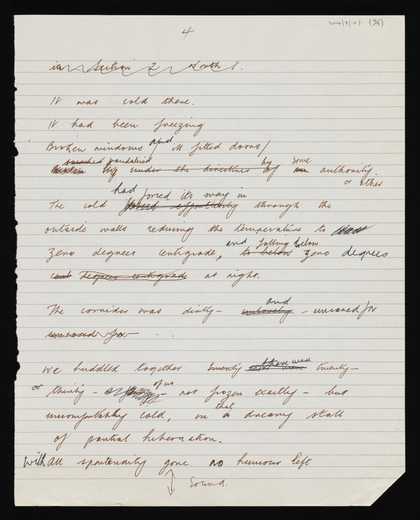 4
in Section 2
It was cold there.
It had been freezing
and
Broken windows ill fitted doors/
smashed vandalised by some
by under the direction of authority.
or other
had forced its way in
The cold forced through the
outside walls reducing the temperature to
and falling below
zero degrees centigrade, to below zero degrees
degrees centigrade at night.
and
The corridor was dirty – – uncared for
uncared for
there were
We huddled together twenty twenty–
of us
or thirty – not frozen exactly – but
that
uncomfortably cold, in a dreamy state
of partial hibernation.
With All spontaneity gone no humour left
Sound